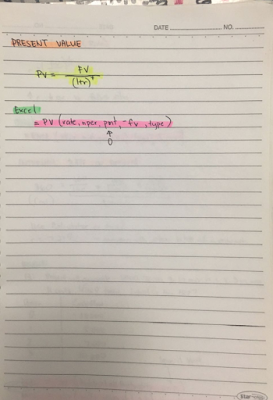 DATE NO.
PRESENT VALUE
PV = FV
(1+r)ⁿ
Excel
= PV (rate, nper, pmt, -fv, type)
↑
0